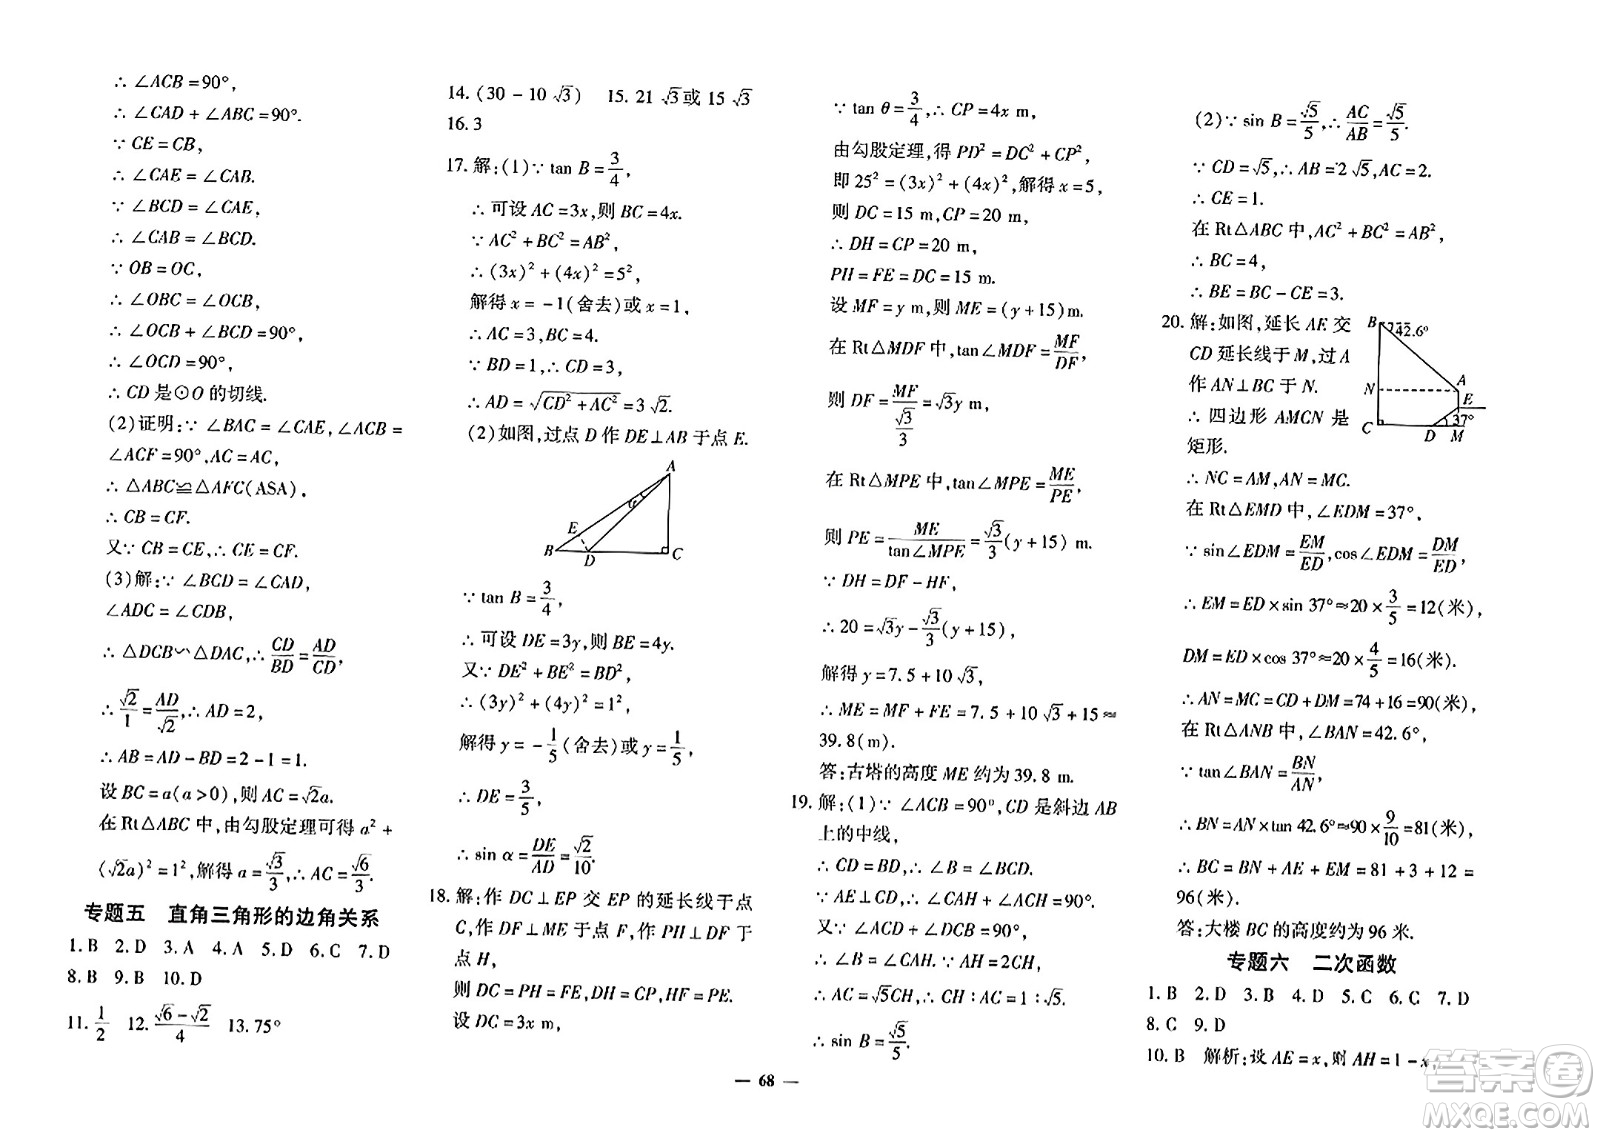 ∴ ∠ACB = 90°,
∴ ∠CAD + ∠ABC = 90°.
∵ CE = CB,
∴ ∠CAE = ∠CAB.
∵ ∠BCD = ∠CAE,
∴ ∠CAB = ∠BCD.
∵ OB = OC,
∴ ∠OBC = ∠OCB,
∴ ∠OCB + ∠BCD = 90°,
∴ ∠OCD = 90°,
∴ CD 是⊙O 的切线.
(2)证明:∵ ∠BAC = ∠CAE, ∠ACB =
∠ACF = 90°, AC = AC,
∴ △ABC≌△AFC(ASA),
∴ CB = CF.
又∵ CB = CE,∴ CE = CF.
(3)解:∵ ∠BCD = ∠CAD,
∠ADC = ∠CDB,
∴ △DCB∽△DAC,∴ CD/BD = AD/CD,
∴ √2/1 = AD/√2,∴ AD = 2,
∴ AB = AD - BD = 2 - 1 = 1.
设 BC = a(a > 0),则 AC = √2a.
在 Rt△ABC 中,由勾股定理可得 a² +
(√2a)² = 1²,解得 a = √3/3,∴ AC = √6/3.
专题五 直角三角形的边角关系
1. B 2. D 3. A 4. A 5. D 6. C 7. D
8. B 9. B 10. D
11. 1/2 12. (√6 - √2)/4 13. 75°
14. (30 - 10√3) 15. 21√3或 15√3
16. 3
17. 解:(1)∵ tan B = 3/4,
∴ 可设 AC = 3x,则 BC = 4x.
∵ AC² + BC² = AB²,
∴ (3x)² + (4x)² = 5²,
解得 x = -1(舍去)或 x = 1,
∴ AC = 3, BC = 4.
∵ BD = 1,∴ CD = 3,
∴ AD = √(CD² + AC²) = 3√2.
(2)如图,过点 D 作 DE⊥AB 于点 E.
A
α
E
B
D
C
∵ tan B = 3/4,
∴ 可设 DE = 3y,则 BE = 4y.
又∵ DE² + BE² = BD²,
∴ (3y)² + (4y)² = 1²,
解得 y = -1/5(舍去)或 y = 1/5,
∴ DE = 3/5,
∴ sin α = DE/AD = √2/10.
18. 解:作 DC⊥EP 交 EP 的延长线于点
C,作 DF⊥ME 于点 F,作 PH⊥DF 于
点 H,
则 DC = PH = FE, DH = CP, HF = PE.
设 DC = 3x m,
∵ tan θ = 3/4,∴ CP = 4x m,
由勾股定理,得 PD² = DC² + CP²,
即 25² = (3x)² + (4x)²,解得 x = 5,
则 DC = 15 m, CP = 20 m,
∴ DH = CP = 20 m,
PH = FE = DC = 15 m.
设 MF = y m,则 ME = (y + 15)m.
在 Rt△MDF 中,tan∠MDF = MF/DF,
则 DF = MF/(√3/3) = √3y m,
在 Rt△MPE 中,tan∠MPE = ME/PE,
则 PE = ME/tan∠MPE = √3/3(y + 15) m.
∵ DH = DF - HF,
∴ 20 = √3y - √3/3(y + 15),
解得 y = 7.5 + 10√3,
∴ ME = MF + FE = 7.5 + 10√3 + 15 ≈
39.8(m).
答:古塔的高度 ME 约为 39.8 m.
19. 解:(1)∵ ∠ACB = 90°, CD 是斜边 AB
上的中线,
∴ CD = BD,∴ ∠B = ∠BCD.
∵ AE⊥CD,∴ ∠CAH + ∠ACD = 90°.
又∵ ∠ACD + ∠BCD = 90°,
∴ ∠B = ∠CAH.∵ AH = 2CH,
∴ AC = √5CH,∴ CH∶AC = 1∶√5,
∴ sin B = √5/5.
(2)∵ sin B = √5/5,∴ AC/AB = √5/5.
∵ CD = √5,∴ AB = 2√5, AC = 2.
∴ CE = 1.
在 Rt△ABC 中, AC² + BC² = AB²,
∴ BC = 4,
∴ BE = BC - CE = 3.
20. 解:如图,延长 AE 交
CD 延长线于 M,过 A
作 AN⊥BC 于 N.
∴ 四边形 AMCN 是
矩形.
B
42.6°
N
A
E
37°
C
D
M
∴ NC = AM, AN = MC.
在 Rt△EMD 中, ∠EDM = 37°,
∵ sin∠EDM = EM/ED, cos∠EDM = DM/ED,
∴ EM = ED × sin 37° ≈ 20 × 3/5 = 12(米),
DM = ED × cos 37° ≈ 20 × 4/5 = 16(米).
∴ AN = MC = CD + DM = 74 + 16 = 90(米).
在 Rt△ANB 中, ∠BAN = 42.6°,
∵ tan∠BAN = BN/AN,
∴ BN = AN × tan 42.6° ≈ 90 × 9/10 = 81(米),
∴ BC = BN + AE + EM = 81 + 3 + 12 =
96(米).
答:大楼 BC 的高度约为 96 米.
专题六 二次函数
1. B 2. D 3. B 4. D 5. C 6. C 7. D
8. C 9. D
10. B 解析:设 AE = x,则 AH = 1 - x,
— 68 —
答案圈
MXQE.COM